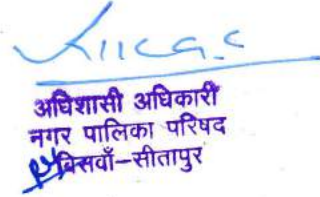 अधिशासी अधिकारी
नगर पालिका परिषद
बिसवाँ–सीतापुर